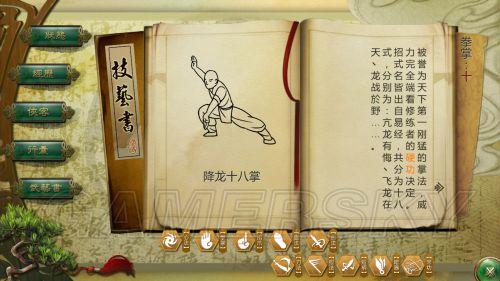 狀態
經歷
俠客
行囊
武藝書
技藝書
降龙十八掌
拳掌：十
被誉为天下第一刚猛的掌法，威
力完全端看修练者的硬功决定。
招式名皆出自易经，共分为十八
式，分别为：亢龙有悔、飞龙在
天、龙战於野……。
GAMERSKY